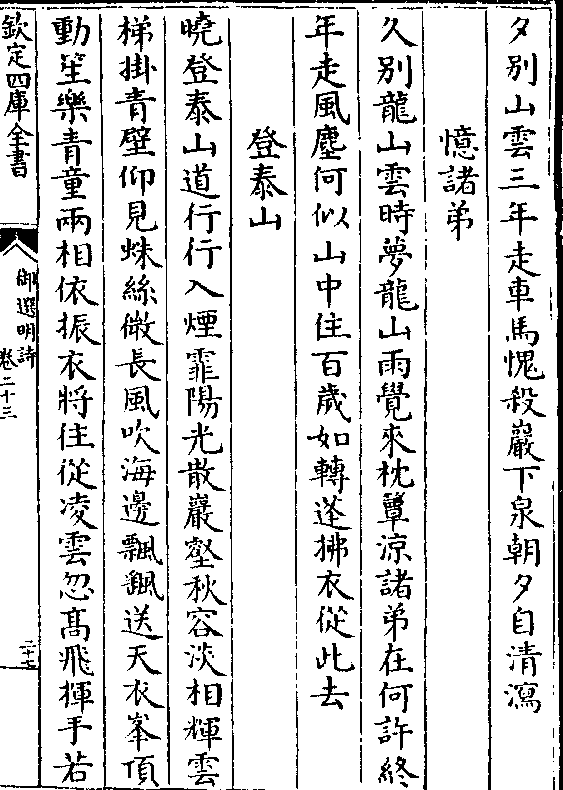 夕別山雲三年走車馬愧殺巖下泉朝夕自清瀉
憶諸弟
久別龍山雲時夢龍山雨覺來枕簟涼諸弟在何許終
年走風塵何似山中住百歲如轉蓬拂衣從此去
登泰山
曉登泰山道行行入煙霏陽光散巖壑秋容淡相輝雲
梯掛青壁仰見蛛絲微長風吹海邊飄颻送天衣峯頂
動笙樂青童兩相依振衣將往從凌雲忽髙飛揮手若
欽定四庫全書
御選明詩
卷二十三
二十七